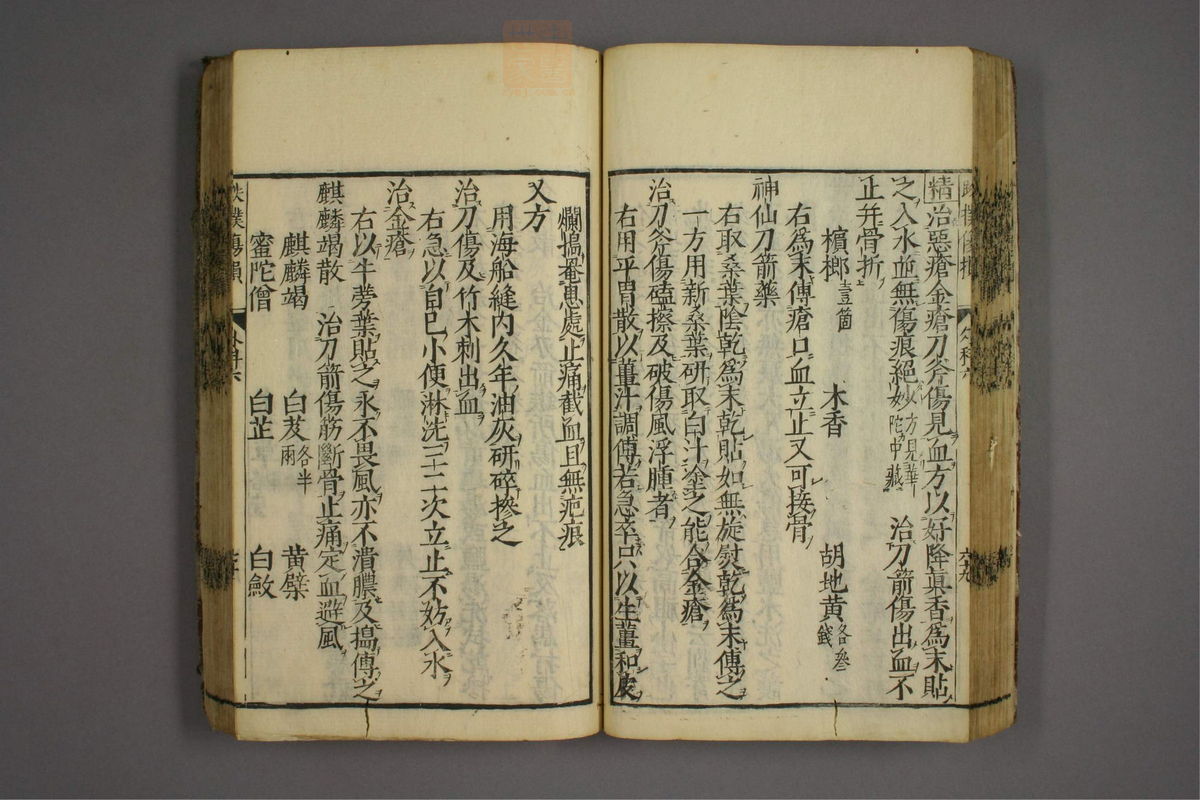 精治惡瘡金瘡刀斧傷見血方以好降眞香爲末貼
之入水並無傷痕絕妙 方見華陀中藏 治刀箭傷出血不
止并骨折
檳榔 壹箇 木香 胡地黃 各叄錢
右爲末傅瘡口血立止又可接骨
神仙刀箭藥
右取桑葉陰乾爲末乾貼如無旋熨乾爲末傅之
一方用新桑葉研取白汁塗之能合金瘡
治刀斧傷磕擦及破傷風浮腫者
右用平胃散以薑汁調傅若急卒只以生薑和皮
爛搗罨患處止痛截血且無疤痕
又方
用海船縫內久年油灰研碎摻之
治刀傷及竹木刺出血
右急以自己小便淋洗三二次立止不妨入水
治金瘡
右以牛蒡葉貼之永不畏風亦不潰膿及搗傅之
麒麟竭散 治刀箭傷筋斷骨止痛定血避風
麒麟竭 白芨 各半兩 黃檗
蜜陀僧 白芷 白斂
外科六